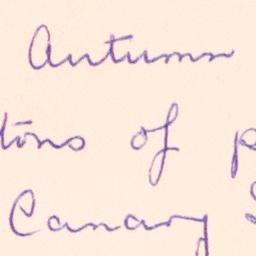 Autumn
tons of p
Canary